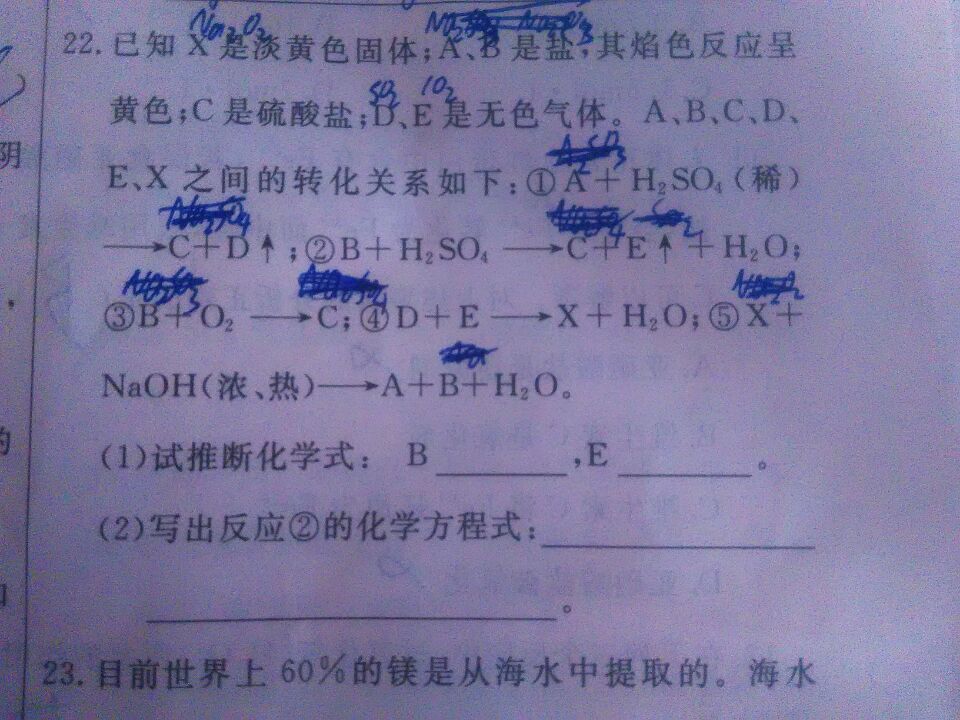 Na₂O₂
22.已知 X 是淡黄色固体;A、B 是盐,其焰色反应呈
SO₂
黄色;C 是硫酸盐;D、E 是无色气体。A、B、C、D、
阴
E、X 之间的转化关系如下:①A+H₂SO₄(稀)
⟶C+D↑;②B+H₂SO₄⟶C+E↑+H₂O;
③B+O₂⟶C;④D+E⟶X+H₂O;⑤X+
NaOH(浓、热)⟶A+B+H₂O。
的
(1)试推断化学式: B________,E________。
(2)写出反应②的化学方程式:________________
________________________。
23.目前世界上 60%的镁是从海水中提取的。海水